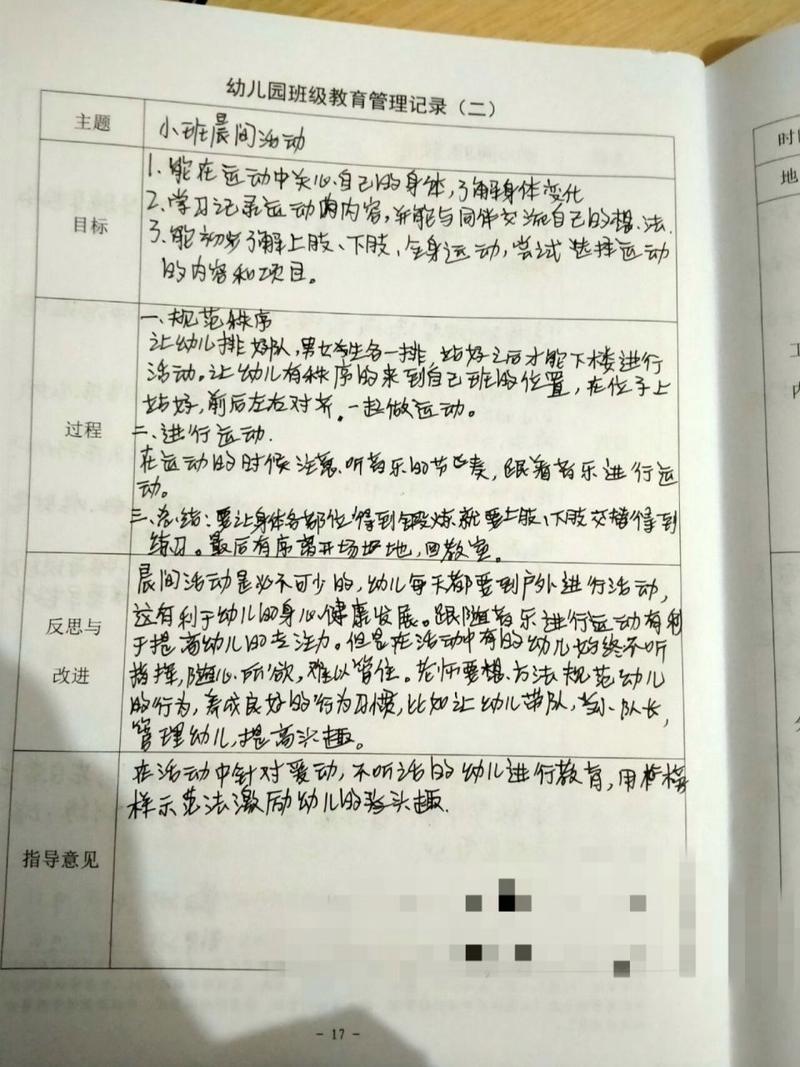 幼儿园班级教育管理记录（二）
主题
小班晨间活动
目标
1.能在运动中关心自己的身体,了解身体变化
2.学习记录运动的内容,并能与同伴交流自己的想法.
3.能初步了解上肢、下肢、全身运动,尝试选择运动
的内容和项目。
过程
一、规范秩序
让幼儿排好队,男女生各一排,站好之后才能下楼进行
活动。让幼儿有秩序的来到自己班的位置,在位子上
站好,前后左右对齐,一起做运动。
二、进行运动.
在运动的时候注意听音乐的节奏,跟着音乐进行运
动。
三、总结:要让身体各部位得到锻炼就要上肢、下肢交替得到
练习。最后有序离开场地,回教室。
反思与
改进
晨间活动是必不可少的,幼儿每天都要到户外进行活动,
这有利于幼儿的身心健康发展。跟随音乐进行运动有利
于提高幼儿的专注力。但是在活动中有的幼儿始终不听
指挥,随心所欲,难以管住。老师要想方法规范幼儿
的行为,养成良好的行为习惯,比如让幼儿带队,当小队长,
管理幼儿,提高兴趣。
指导意见
在活动中针对爱动,不听话的幼儿进行教育,用榜
样示范法激励幼儿的兴趣.
- 17 -
时
地
工
内
分